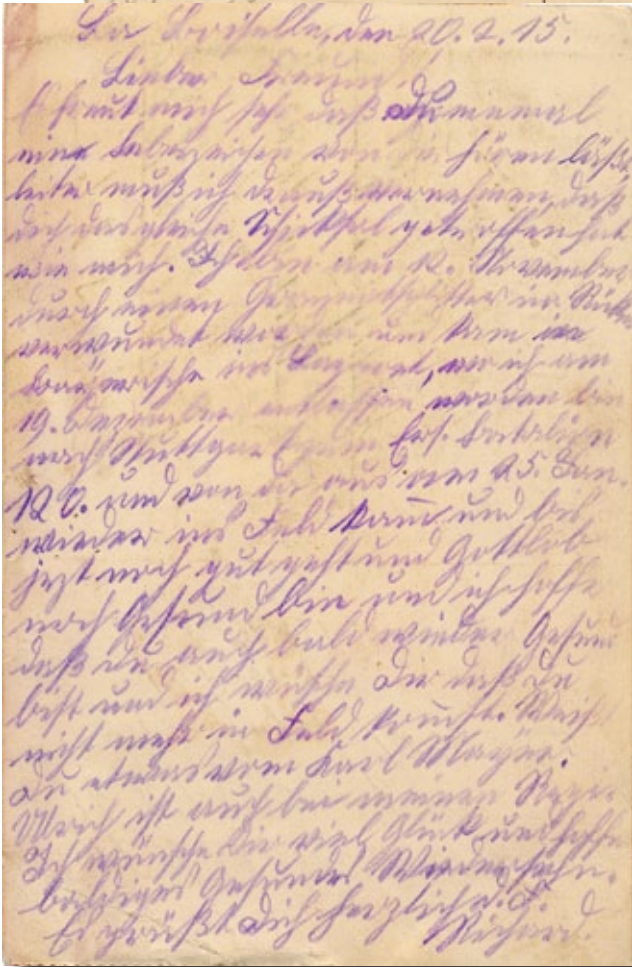 La Boiselle, den 20.2.15.
Lieber Freund!
Es freut mich sehr daß Du einmal
eine Lebenszeichen von dir hören läßt
leider muß ich daraus vernehmen, daß
dich das gleiche Schicksal getroffen hat
wie mich. Ich bin am 12. November
durch einen Granatsplitter im Rücken
verwundet worden und kam in
Bayerische ins Lazaret, wo ich am
19. Dezember entlassen worden bin
nach Stuttgart zum Ers. Batalion
120. und von da aus am 25. Jan.
wieder ins Feld kam und bis
jezt noch gut geht und Gottlob
noch Gesund bin und ich hoffe
daß du auch bald wieder Gesund
bist und ich wünsche Dir daß du
nicht mehr in Feld kommst. Weißt
du etwas vom Karl Mayer.
Ulrich ist auch bei meinen Regi.
Ich wünsche Dir viel Glück und hoffe
baldiges Gesundes Wiedersehn.
Es grüßt Dich herzlich d. F.
Richard.